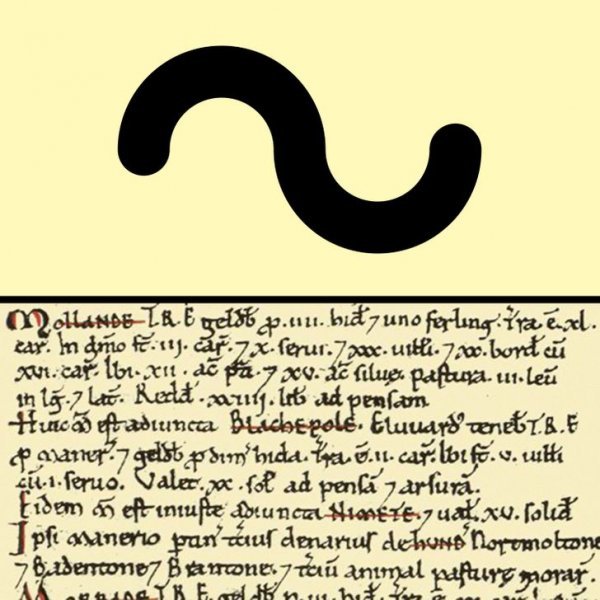 Mollande T.R.E geldb̃ ꝓ .IIII. hid̃ ⁊ uno ferling. Tr̃a .ẽ .xl.
car̃. In dñio st̃ .iii. car̃. ⁊ x. serui. ⁊ xxx. uilli. ⁊ xx. bord̃ cũ
xvi. car̃. Ibi .xii. ac̃ p̃ti. ⁊ xv. ac̃ siluę. Pastura .iii. leũ
in lg̃. ⁊ lat̃. Redd̃ .xxiiii. lib̃ ad pensam
Huic m̃ est adiuncta Blachepole. Eluuard' teneb̃ T.R.E
ꝓ maner̃. ⁊ geldb̃ ꝓ dim̃ hida. Tr̃a .ẽ .ii. car̃. Ibi st̃ .v. uilli
cũ .i. seruo. Valet .xx. sol̃ ad pensã ⁊ arsurã.
Eidem m̃ est iniuste adiuncta Nimete. ⁊ ual̃ .xv. solid̃
Ipsi manerio ptiñ t̃cius denarius de hund̃ Nortmoltone
⁊ Badentone ⁊ Brantone. ⁊ t̃ciũ animal pasturę morar̃.